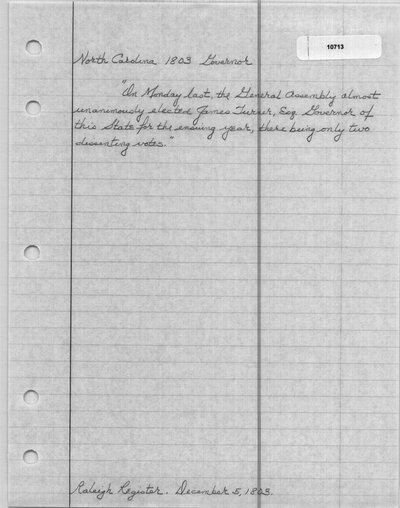 10713
North Carolina 1803 Governor
"On Monday last, the General Assembly almost
unanimously elected James Turner, Esq Governor of
this State for the ensuing year, there being only two
dissenting votes."
Raleigh Register. December 5, 1803.